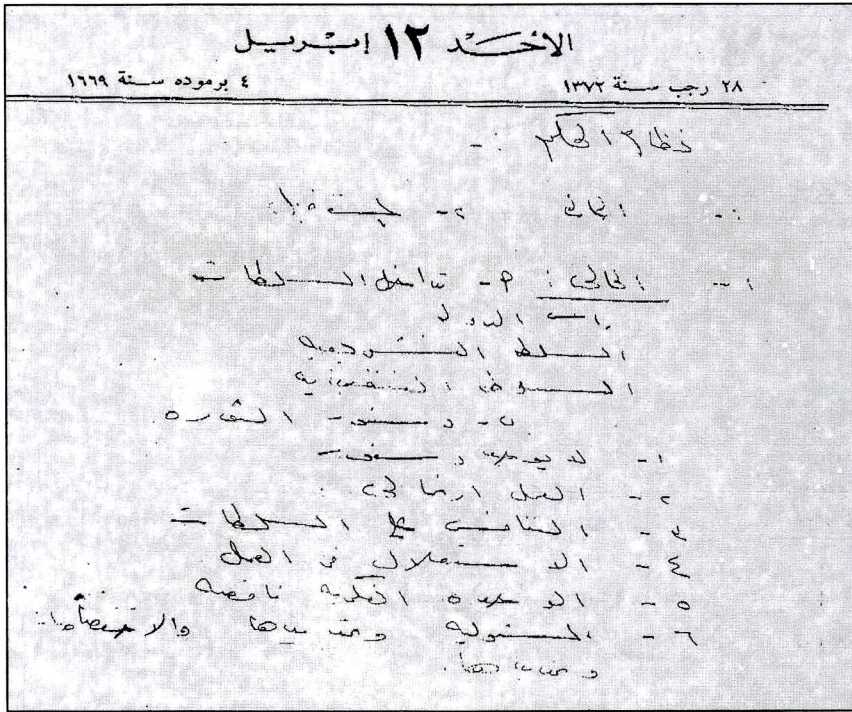 الأحد ١٢ إبريل
٢٨ رجب سنة ١٣٧٢ ٤ برموده سنة ١٦٦٩
نظام الحكم :-
٢-
١- الحالى : ٢- تداخل السلطات
الدولة
السلطة التشريعية
السلطة التنفيذية
ب- دستور الثورة
١- لا يوجد دستور
٢- العمل ارتجالى
٣- التنافس على السلطات
٤- الاستقلال فى العمل
٥- الوحدة الفكرية ناقصة
٦- المسئولية وتحديدها والاختصاصات